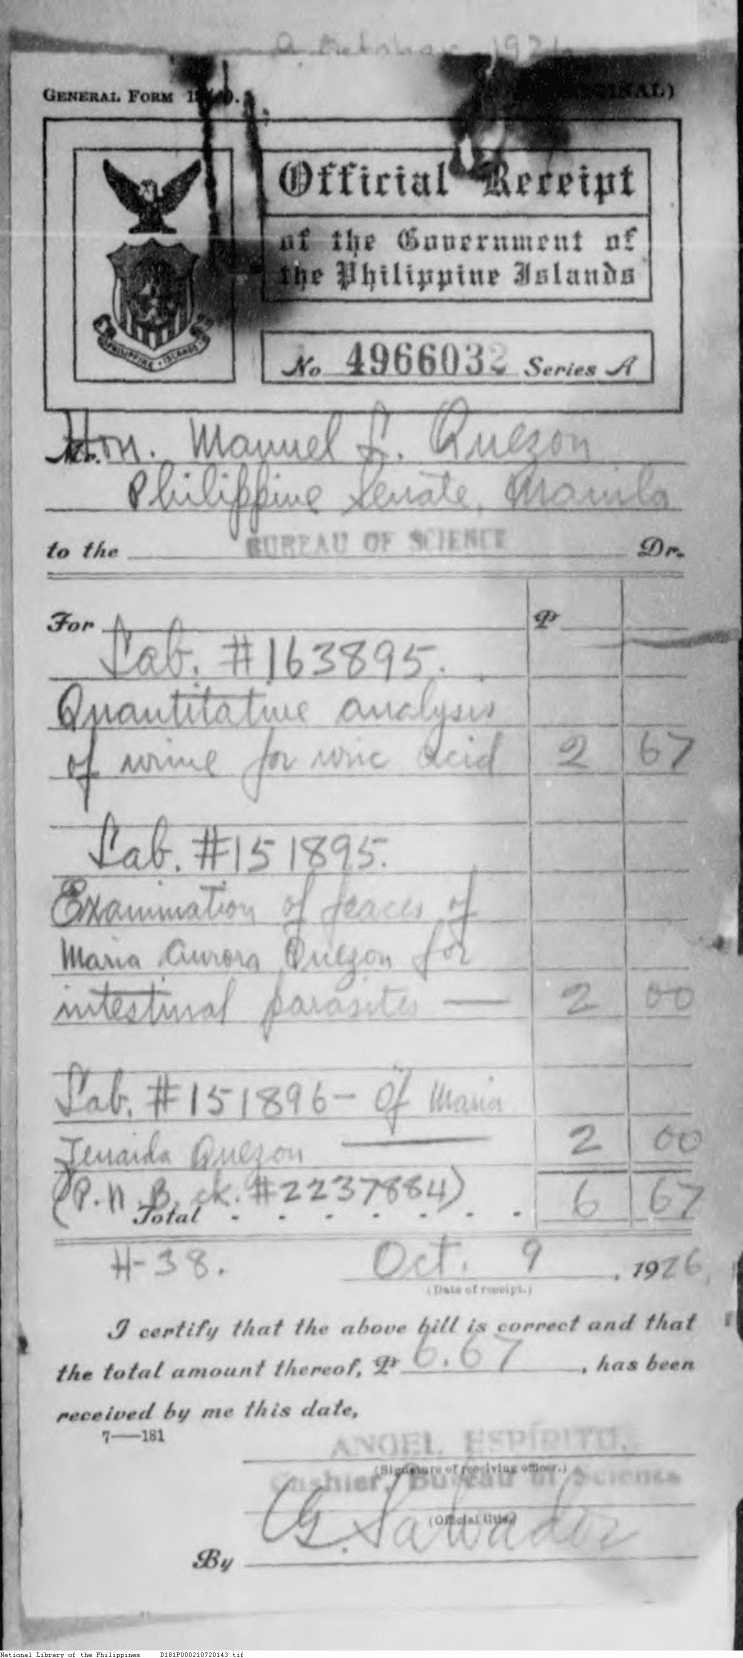 GENERAL FORM
Official Receipt
of the Government of
the Philippine Islands
PHILIPPINE ISLANDS
No 4966032 Series A
Hon. Manuel L. Quezon
Philippine Senate, Manila
to the BUREAU OF SCIENCE Dr.
For ₱
Lab. #163895.
Quantitative analysis
of urine for uric acid 2 67
Lab. #151895.
Examination of feaces of
Maria Aurora Quezon for
intestinal parasites — 2 00
Lab. #151896- of Maria
Zenaida Quezon — 2 00
(P.N.B. ck. #2237884)
Total - - - - - - - 6 67
H-38. Oct. 9, 1926,
(Date of receipt.)
I certify that the above bill is correct and that
the total amount thereof, ₱ 6.67, has been
received by me this date,
7—181
ANGEL ESPÍRITU,
(Signature of receiving officer.)
Cashier, Bureau of Science
(Official title)
By G. Salvador
National Library of the Philippines D181P000210720143.tif